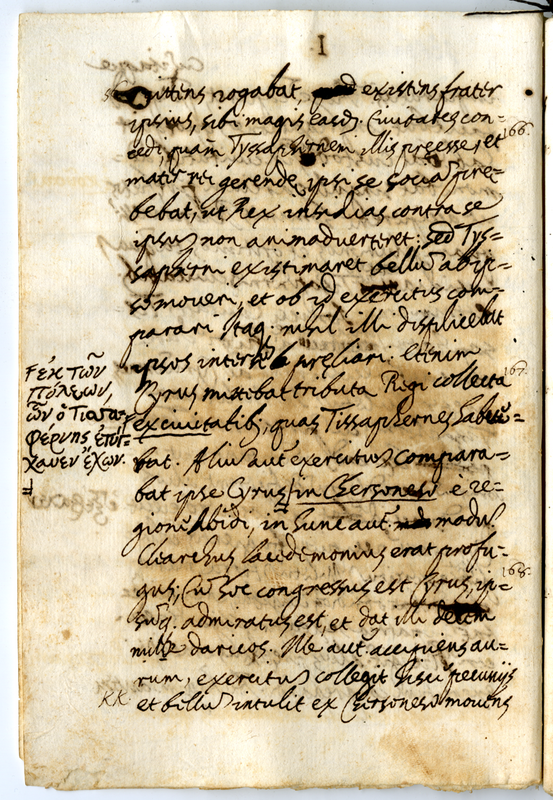 I
mittens rogabat, existens frater
ipsius, sibi magis easdq. Civitates con-
cedi, quam Tyssaphernem illis preesse, et
166.
mater rei gerende, ipsi se socia prę-
bebat, ut Rex insidias contra se
ipsuz non animadverteret: sed Tys-
sapherni existimaret bellu ab ip-
so moveri, et ob id exercitus com-
parari Itaq. nihil illi displicebat
ipsos inter se preliari. Etenim
Cyrus mittebat tributa Regi collecta
167.
ex civitatibq, quas Tissaphernes habue-
bat. Aliu aut exercitus compara-
bat ipse Cyrus in Chersoneso e re-
gione Abidi, in hunc aut. modu
Clearchus lacedemonius erat profu-
gus; Cu hoc congressus est Cyrus, ip-
168.
suq. admiratus est, et dat illi decem
mille daricos. Ille aut. accipiens au-
rum, exercitus collegit hisce pecunijs
et bellu intulit ex Chersoneso movens
Ϝ ἐκ τῶν
πόλεων,
ὧν ὁ Τισσα-
φέρνης ἐτύγ-
χανεν ἔχων.
KK.